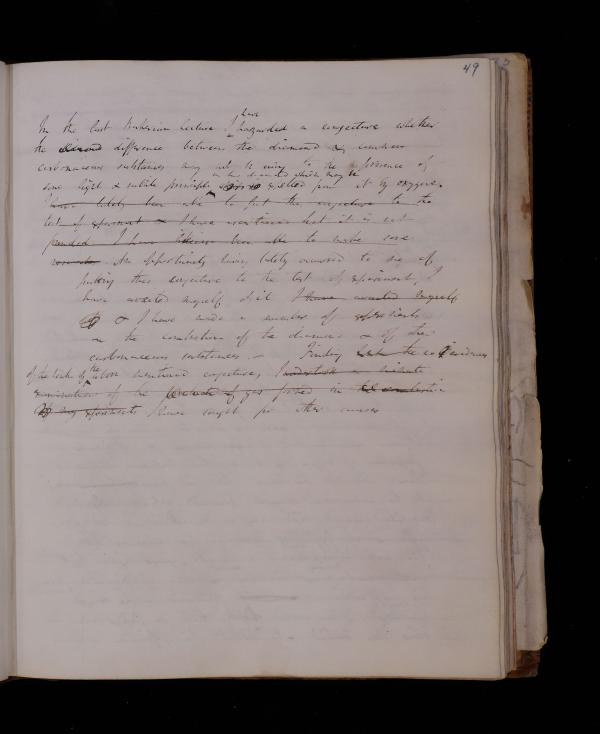 49
have
In the last Bakerian Lecture I hazarded a conjecture whether
the difference between the diamond & common
carbonaceous substances may not be owing to the presence of
in the diamond which may be
some light & subtle principle expelled from it by oxygene.
I have lately been able to put this conjecture to the
test of experiment & I have ascertained that it is not
founded I have likewise been able to make some
An opportunity having lately occurred to me of
putting this conjecture to the test of experiment, I
have availed myself of it I have availed myself
& I have made a number of experiments
on the combustion of the diamond & of other
carbonaceous substances. - Finding the
of the truth of the above mentioned conjecture, I undertook a minute
examination of the of gas formed in combustion
my experiments I have sought for other causes